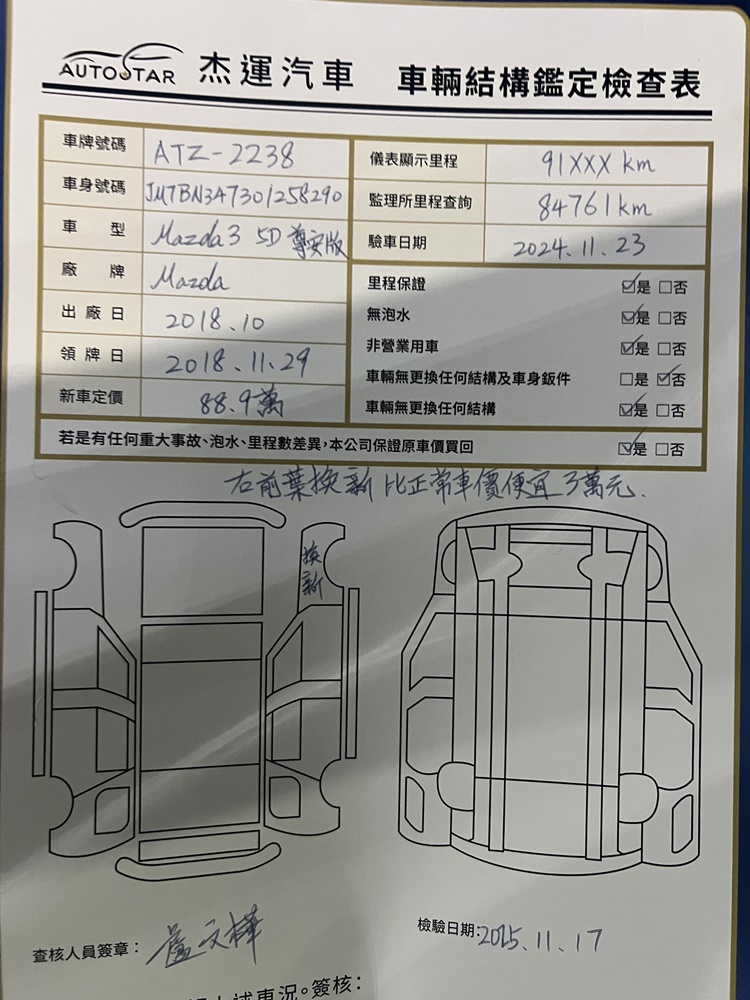 AUTOSTAR 杰運汽車 車輛結構鑑定檢查表
車牌號碼 ATZ-2238
車身號碼 JM7BN347301258290
車型 Mazda3 5D 尊安版
廠牌 Mazda
出廠日 2018.10
領牌日 2018.11.29
新車定價 88.9萬
儀表顯示里程 91XXX km
監理所里程查詢 84761km
驗車日期 2024.11.23
里程保證 ☑是 □否
無泡水 ☑是 □否
非營業用車 ☑是 □否
車輛無更換任何結構及車身鈑件 □是 ☑否
車輛無更換任何結構 ☑是 □否
若是有任何重大事故、泡水、里程數差異,本公司保證原車價買回 ☑是 □否
右前葉換新 比正常車價便宜3萬元.
換
新
查核人員簽章:
檢驗日期:2025.11.17
上述車況。簽核: